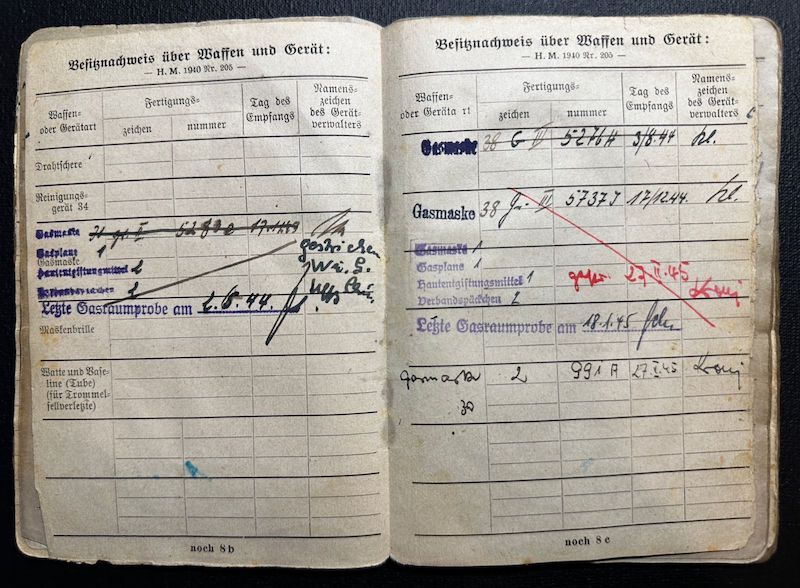 Besitznachweis über Waffen und Gerät:
— H. M. 1940 Nr. 205 —
Waffen- oder Gerätart
Fertigungs-
zeichen
nummer
Tag des Empfangs
Namens- zeichen des Gerät- verwalters
Drahtschere
Reinigungs- gerät 34
Gasmaske
Gasplane 1
Gasmaske
Hautentgiftungsmittel 2
Verbandpäckchen 2
gestrichen
Letzte Gasraumprobe am
Maskenbrille
Watte und Vase- line (Tube) (für Trommel- fellverletzte)
noch 8 b
Besitznachweis über Waffen und Gerät:
— H. M. 1940 Nr. 205 —
Waffen- oder Geräta rt
Fertigungs-
zeichen
nummer
Tag des Empfangs
Namens- zeichen des Gerät- verwalters
Gasmaske 38 G IV 5276 H 3/8.44 Kl.
Gasmaske 38 III 5737 J 17/12.44. Kl.
Gasmaske 1
Gasplans 1
Hautentgiftungsmittel 1 27.II.45
Verbandspäckchen 2
Letzte Gasraumprobe am 18.1.45
Gasmaske 2 991 A 27.II.45
30
noch 8 c